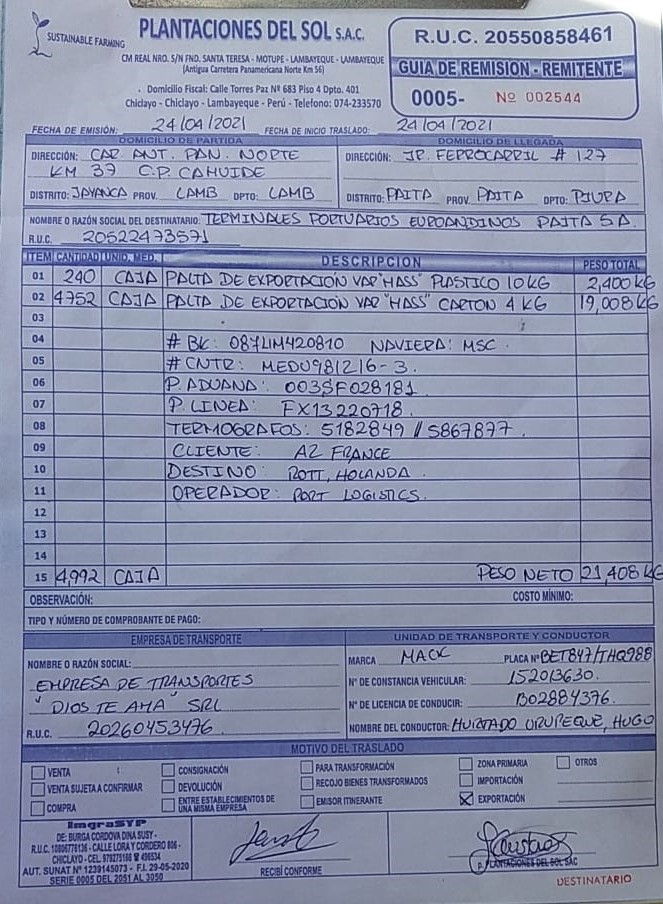 SUSTAINABLE FARMING
PLANTACIONES DEL SOL S.A.C.
CM REAL NRO. S/N FND. SANTA TERESA - MOTUPE - LAMBAYEQUE - LAMBAYEQUE
(Antigua Carretera Panamericana Norte Km 56)
Domicilio Fiscal: Calle Torres Paz Nº 683 Piso 4 Dpto. 401
Chiclayo - Chiclayo - Lambayeque - Perú - Telefono: 074-233570
R.U.C. 20550858461
GUIA DE REMISION - REMITENTE
0005- Nº 002544
FECHA DE EMISIÓN: 24/04/2021 FECHA DE INICIO TRASLADO: 24/04/2021
DOMICILIO DE PARTIDA
DIRECCIÓN: CAR ANT. PAN. NORTE
KM 37 C.P. CAHUIDE
DISTRITO: JAYANCA PROV. LAMB DPTO: LAMB
DOMICILIO DE LLEGADA
DIRECCIÓN: JR. FERROCARRIL # 127
DISTRITO: PAITA PROV. PAITA DPTO: PIURA
NOMBRE O RAZÓN SOCIAL DEL DESTINATARIO: TERMINALES PORTUARIOS EUROANDINOS PAITA SA.
R.U.C. 20522473571
ITEM CANTIDAD UNID. MED. DESCRIPCION PESO TOTAL
01 240 CAJA PALTA DE EXPORTACIÓN VAR "HASS" PLASTICO 10 KG 2,400 KG
02 4752 CAJA PALTA DE EXPORTACIÓN VAR "HASS" CARTON 4 KG 19,008 KG
03
04 # BK: 087LIM420810 NAVIERA: MSC.
05 # CNTR: MEDU981216-3.
06 P. ADUANA: 003SF028181
07 P. LINEA: FX13220718.
08 TERMOGRAFOS: 5182849 // 5867877.
09 CLIENTE: AZ FRANCE
10 DESTINO: ROTT, HOLANDA.
11 OPERADOR: PORT LOGISTICS.
12
13
14
15 4,992 CAJA PESO NETO 21,408 KG
OBSERVACIÓN: COSTO MÍNIMO:
TIPO Y NÚMERO DE COMPROBANTE DE PAGO:
EMPRESA DE TRANSPORTE
NOMBRE O RAZÓN SOCIAL:
EMPRESA DE TRANSPORTES
"DIOS TE AMA" SRL
R.U.C. 20260453476
UNIDAD DE TRANSPORTE Y CONDUCTOR
MARCA MACK PLACA Nº BET847/THQ988
Nº DE CONSTANCIA VEHICULAR: 152013630.
Nº DE LICENCIA DE CONDUCIR: B02884376.
NOMBRE DEL CONDUCTOR: HURTADO URUPEQUE, HUGO
MOTIVO DEL TRASLADO
VENTA
VENTA SUJETA A CONFIRMAR
COMPRA
CONSIGNACIÓN
DEVOLUCIÓN
ENTRE ESTABLECIMIENTOS DE
UNA MISMA EMPRESA
PARA TRANSFORMACIÓN
RECOJO BIENES TRANSFORMADOS
EMISOR ITINERANTE
ZONA PRIMARIA
IMPORTACIÓN
EXPORTACIÓN
OTROS
ImgraSYP
DE: BURGA CORDOVA DINA SUSY -
R.U.C. 10806776136 - CALLE LORA Y CORDERO 806 -
CHICLAYO - CEL. 978275168 # 496534
AUT. SUNAT Nº 1239145073 - F.I. 29-05-2020
SERIE 0005 DEL 2051 AL 3050
RECIBÍ CONFORME
P. PLANTACIONES DEL SOL SAC
DESTINATARIO